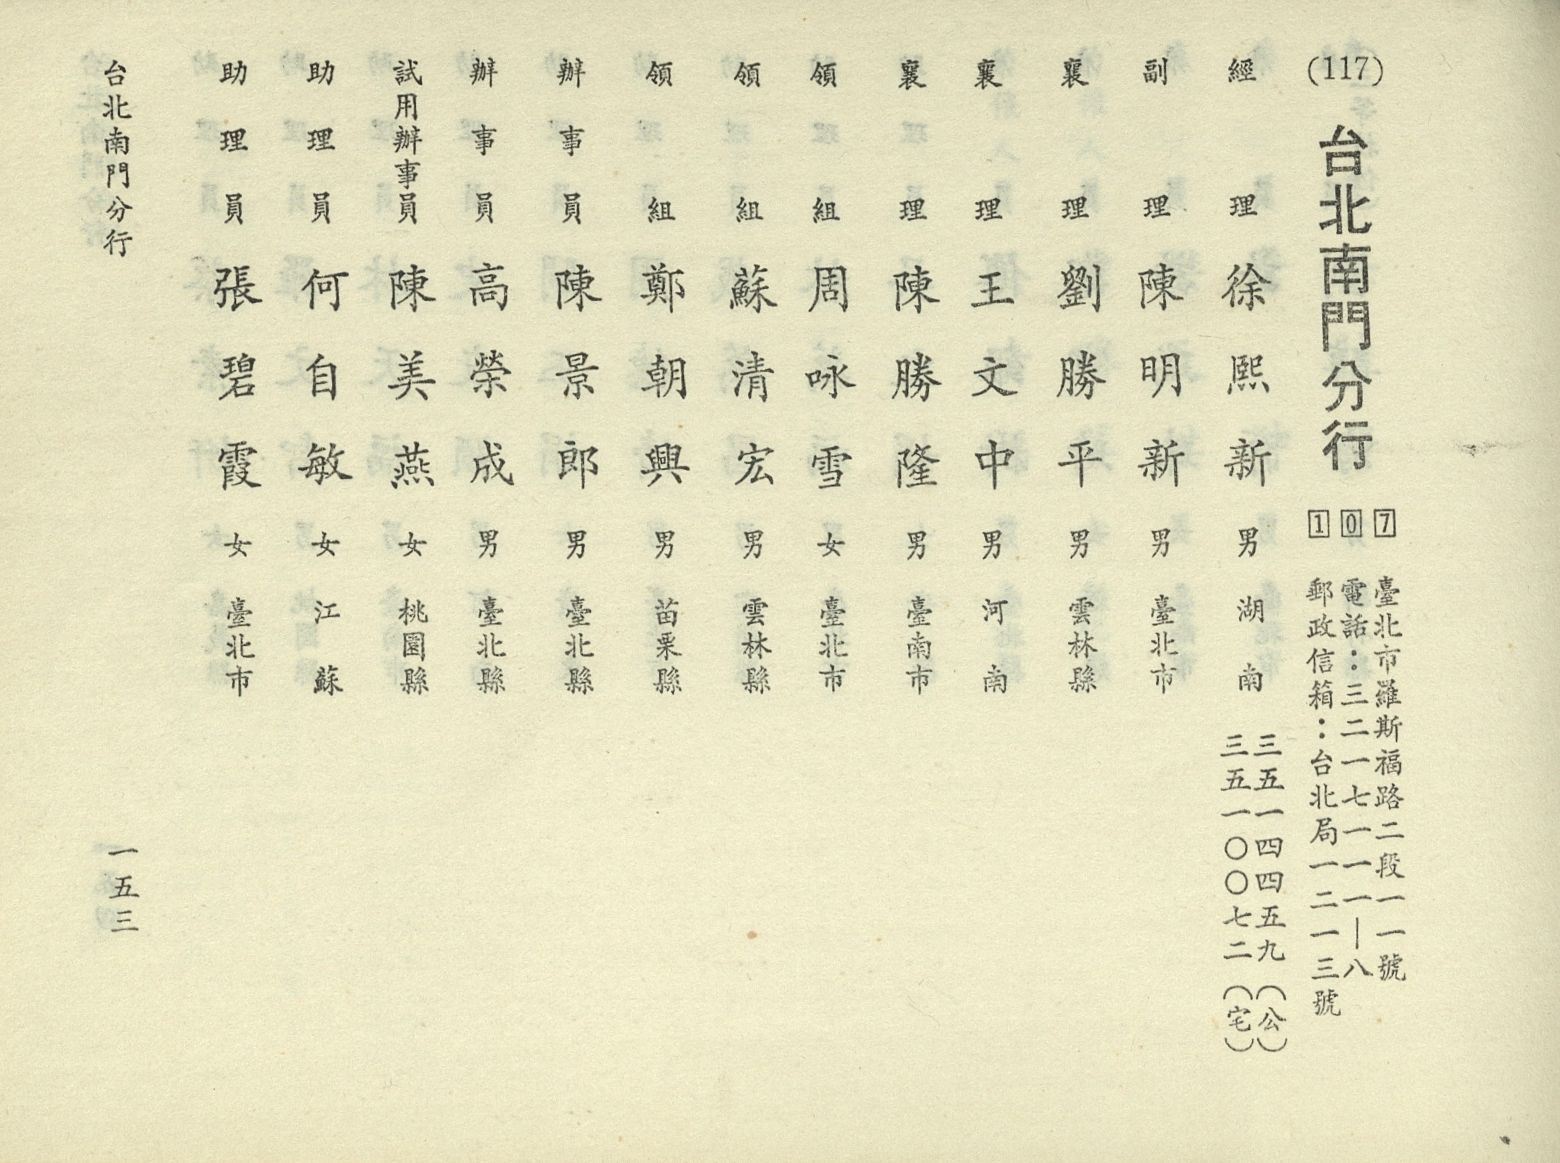 (117) 台北南門分行
107
臺北市羅斯福路二段一一號
電話：三二一七一一一—八
郵政信箱：台北局一二一三號
經理 徐熙新 男 湖南
三五一四四五九（公）
三五一〇〇七二（宅）
副理 陳明新 男 臺北市
襄理 劉勝平 男 雲林縣
襄理 王文中 男 河南
襄理 陳勝隆 男 臺南市
領組 周咏雪 女 臺北市
領組 蘇清宏 男 雲林縣
領組 鄭朝興 男 苗栗縣
辦事員 陳景郎 男 臺北縣
辦事員 高榮成 男 臺北縣
試用辦事員 陳美燕 女 桃園縣
助理員 何自敏 女 江蘇
助理員 張碧霞 女 臺北市
台北南門分行 一五三